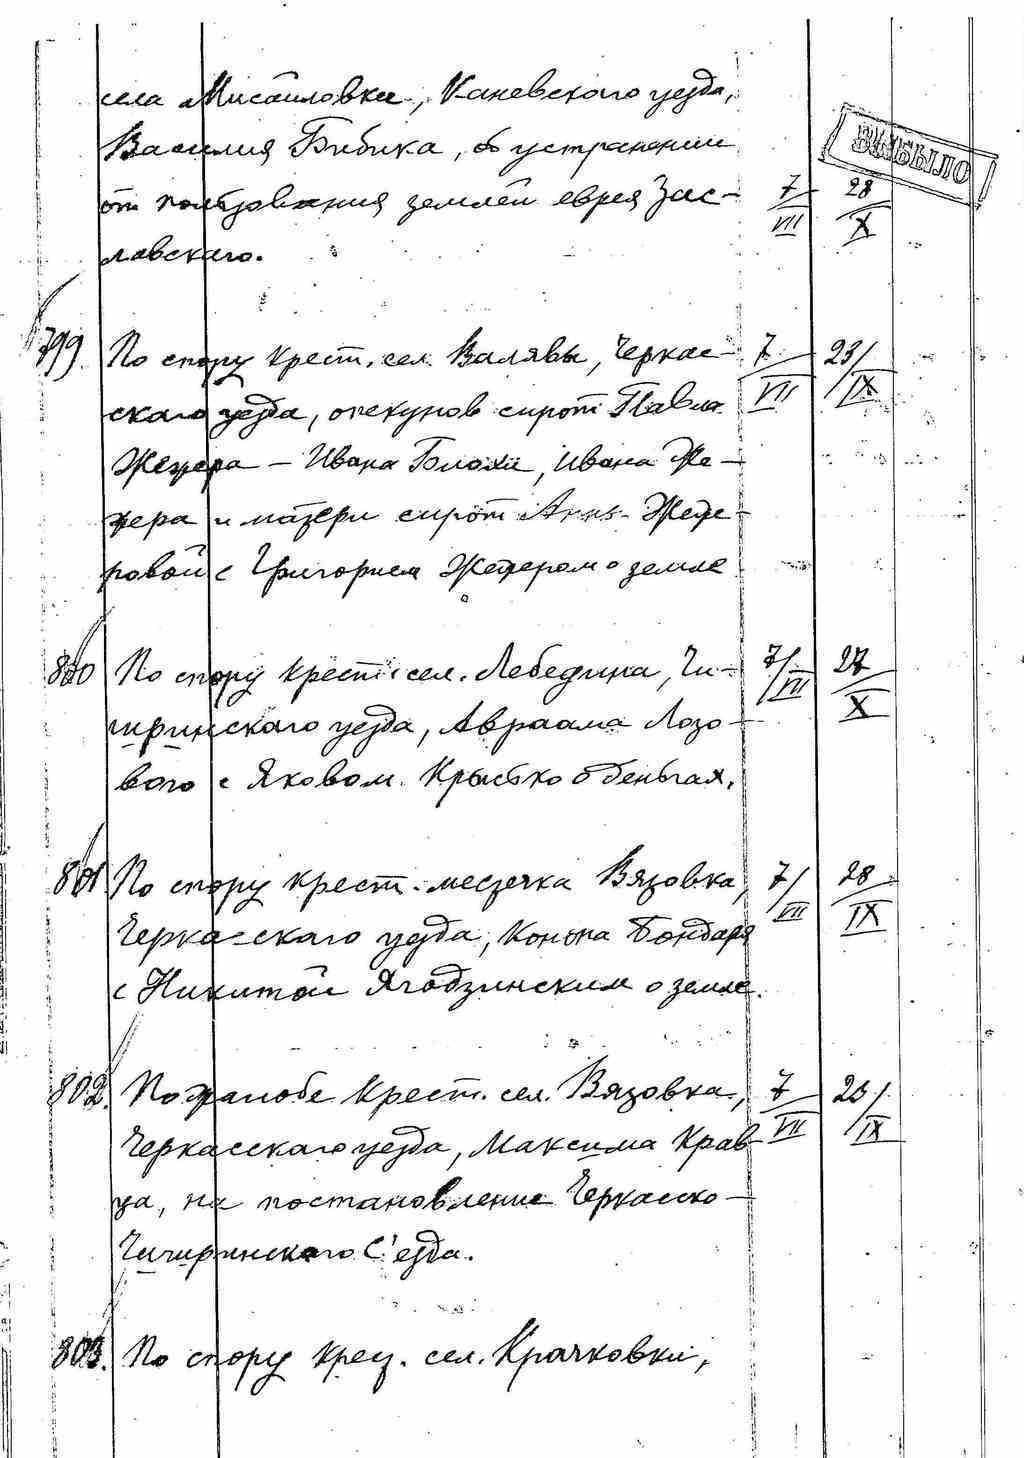 села Мисайловки, Каневского уезда,
ВЫБЫЛО
Василия Бибика, об устранении
от пользования землей еврея Зас- 7/VII 28/X
лавскаго.
799. По спору крест. сел. Валявы, Черкас- 7/VII 23/IX
скаго уезда, опекунов сирот Павла
Жежера - Ивана Блохи, Ивана Же-
жера и матери сирот Анны Жеже-
ровой с Григорием Жежером о земле
800 По спору крест. сел. Лебедина, Чи- 7/VII 27/X
гиринскаго уезда, Авраама Лозо-
вого с Яковом Крысько о деньгах.
801 По спору крест. местечка Вязовка, 7/VII 28/IX
Черкасскаго уезда, Конона Бондаря
с Никитой Ягодзинским о земле.
802. По жалобе крест. сел. Вязовка, 7/VII 23/IX
Черкасскаго уезда, Максима Крав-
ца, на постановление Черкасско-
Чигиринскаго С'езда.
803. По спору крес. сел. Крачковки,